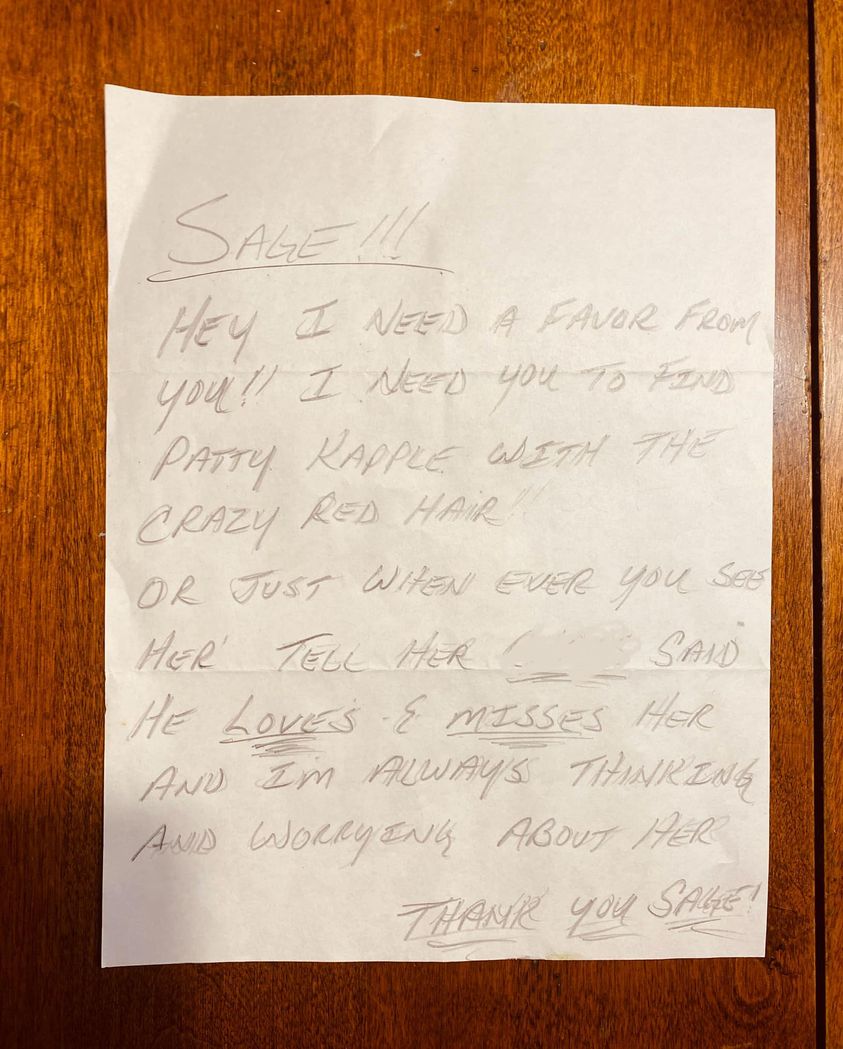 SAGE!!!
HEY I NEED A FAVOR FROM
YOU!! I NEED YOU TO FIND
PATTY KAPPLE WITH THE
CRAZY RED HAIR!!
OR JUST WHEN EVER YOU SEE
HER' TELL HER SAID
HE LOVES & MISSES HER
AND IM ALWAYS THINKING
AND WORRYING ABOUT HER
THANK YOU SAGE!